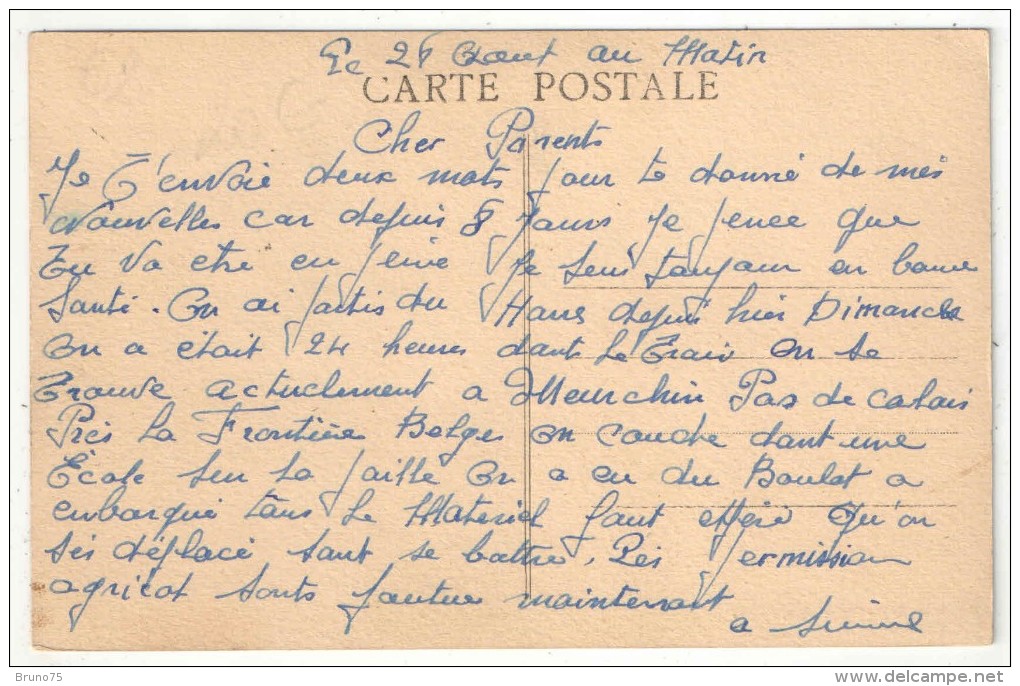 Le 28 Aout au Matin
CARTE POSTALE
Cher Parents
Je t'envoie deux mots pour te donné de mes
nouvelles car depuis 8 jours je pense que
tu va etre en peine je suis toujour en bonne
Santé. On ai partis du Hans depuis hier Dimanche
on a était 24 heures dans le train on se
trouve actuelement a Meurchin Pas de calais
Près la Frontière Belge on couche dant une
École sur la paille on a eu du Boulot a
enbarqué tous le Matériel faut espéré qu'on
sés déplacé sant se battre. Les permission
agricol sonts foutue maintenant
a suivre
Bruno75
delcampe.net